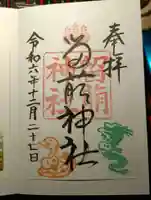 奉拝
留萌神社
令和六年十二月二十七日